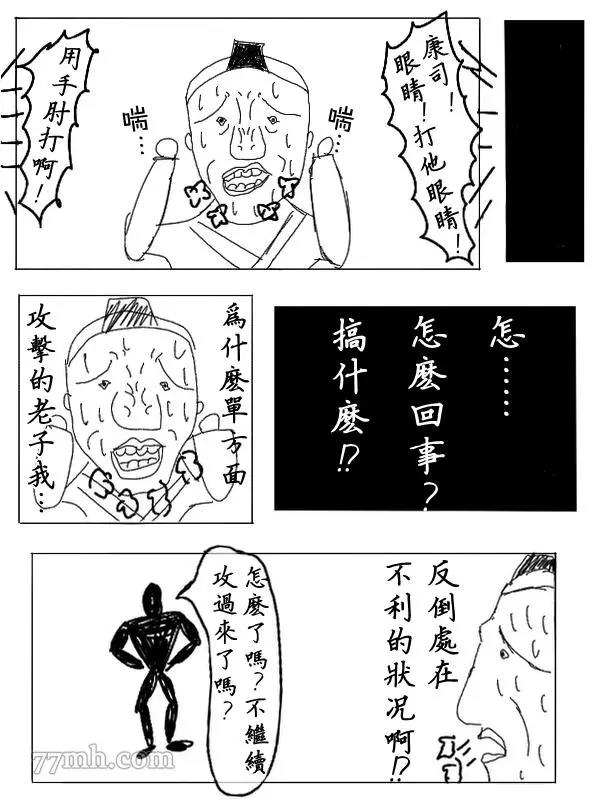 康司！
眼睛！打他眼睛！
喘…
喘…
用手肘打啊！
怎……
怎麼回事？
搞什麼！？
為什麼單方面
攻擊的老子我…
反倒處在
不利的狀況啊！？
怎麼了嗎？不繼續
攻過來了嗎？
77mh.com